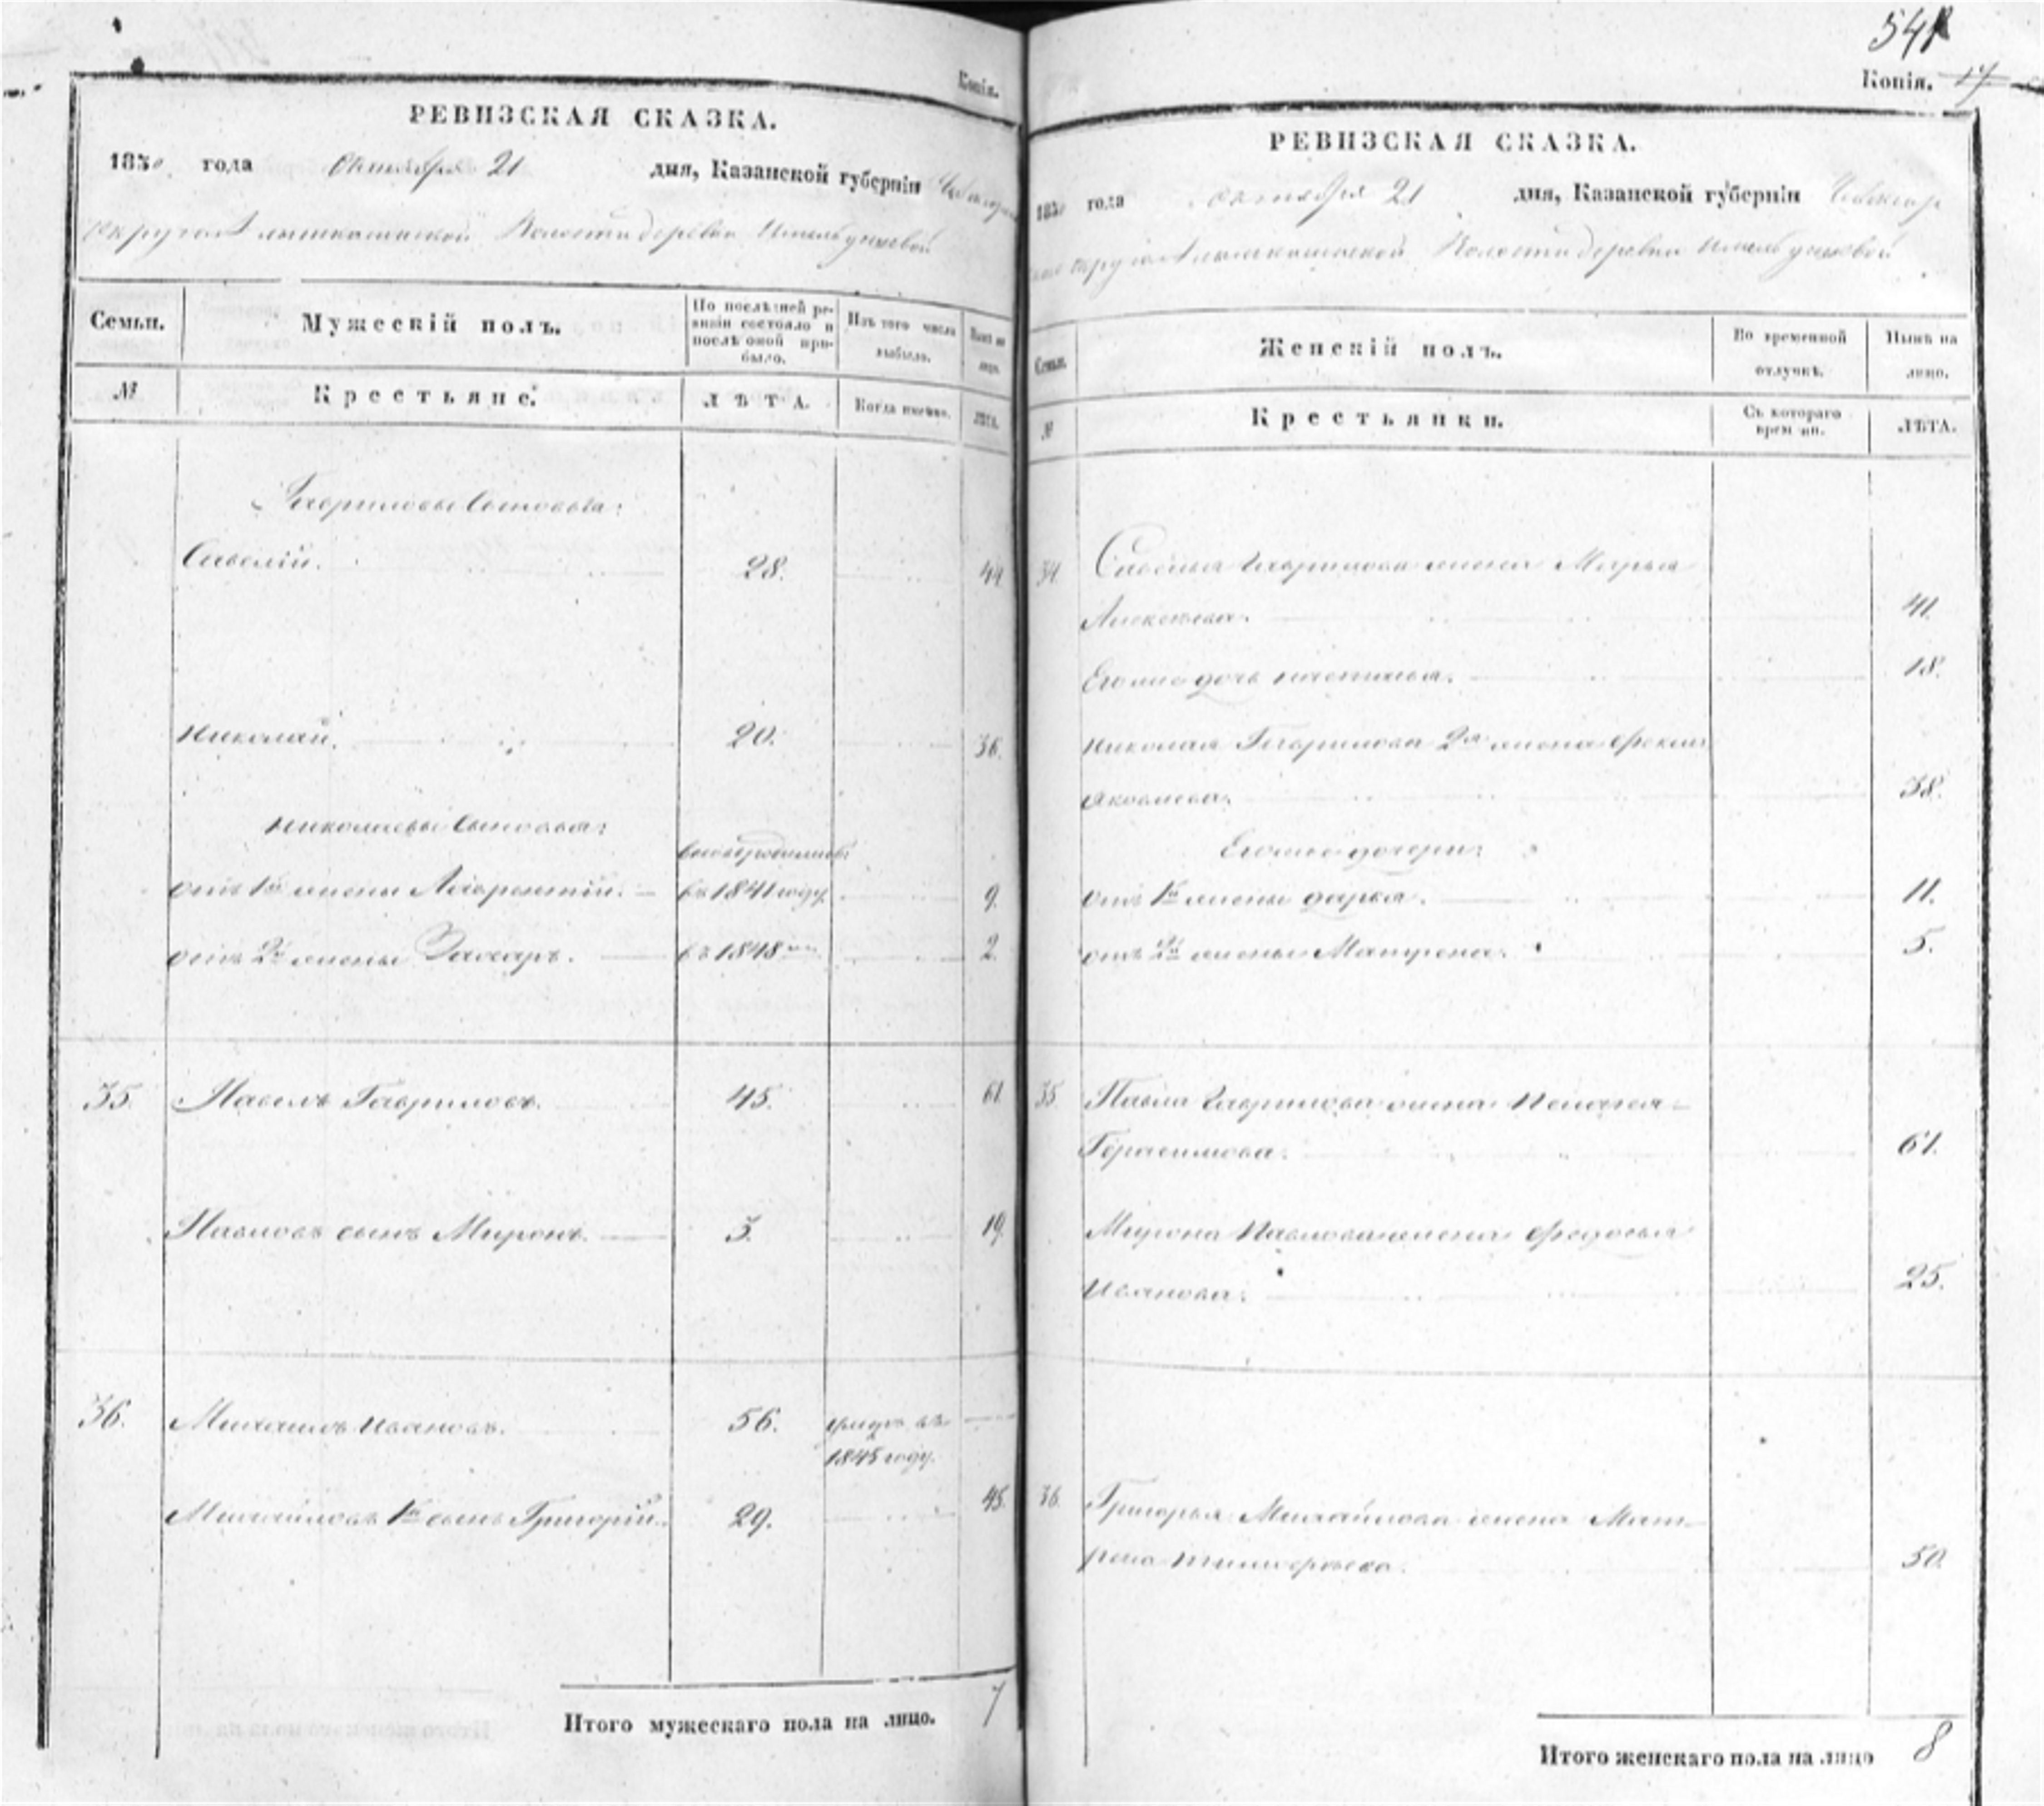 Копія.
РЕВИЗСКАЯ СКАЗКА.
1850 года Октября 21 дня, Казанской губерніи
округи Волости деревни
Семьи.
Мужескій полъ.
По послѣдней ревизіи состояло и послѣ оной прибыло.
Изъ того числа выбыло.
Нынѣ на лицо.
№
Крестьяне.
ЛѢТА.
Когда именно.
ЛѢТА.
Гавриловы сыновья:
Савелій. 28. 44
Николай. 20. 36.
Николаевы сыновья:
вновь родились
отъ 1й жены Лаврентій. въ 1841 году 9.
отъ 2й жены Захаръ. въ 1848 2.
35. Павелъ Гавриловъ. 45. 61.
Павловъ сынъ Миронъ. 3. 19.
36. Михаилъ Ивановъ. 56. умеръ въ
1845 году.
Михайловъ 1й сынъ Григорій. 29. 45.
Итого мужескаго пола на лицо. 7
541
Копія. 17
РЕВИЗСКАЯ СКАЗКА.
1850 года октября 21 дня, Казанской губерніи Чебоксар
округи Волости деревни
Семьи.
Женскій полъ.
Во временной отлучкѣ.
Нынѣ на лицо.
№
Крестьянки.
Съ котораго времени.
ЛѢТА.
34. Савелья Гаврилова жена Марья
Алексѣева. 41.
Его же дочь Настасья. 18.
Николая Гаврилова 2я жена Фекла
Яковлева. 38.
Его же дочери:
отъ 1й жены Дарья. 11.
отъ 2й жены Матрена. 5.
35. Павла Гаврилова жена Пелагея
Герасимова. 61.
Мирона Павлова жена Федосья
Иванова. 25.
36. Григорья Михайлова жена Мат-
рена Тимофѣева. 50.
Итого женскаго пола на лицо 8